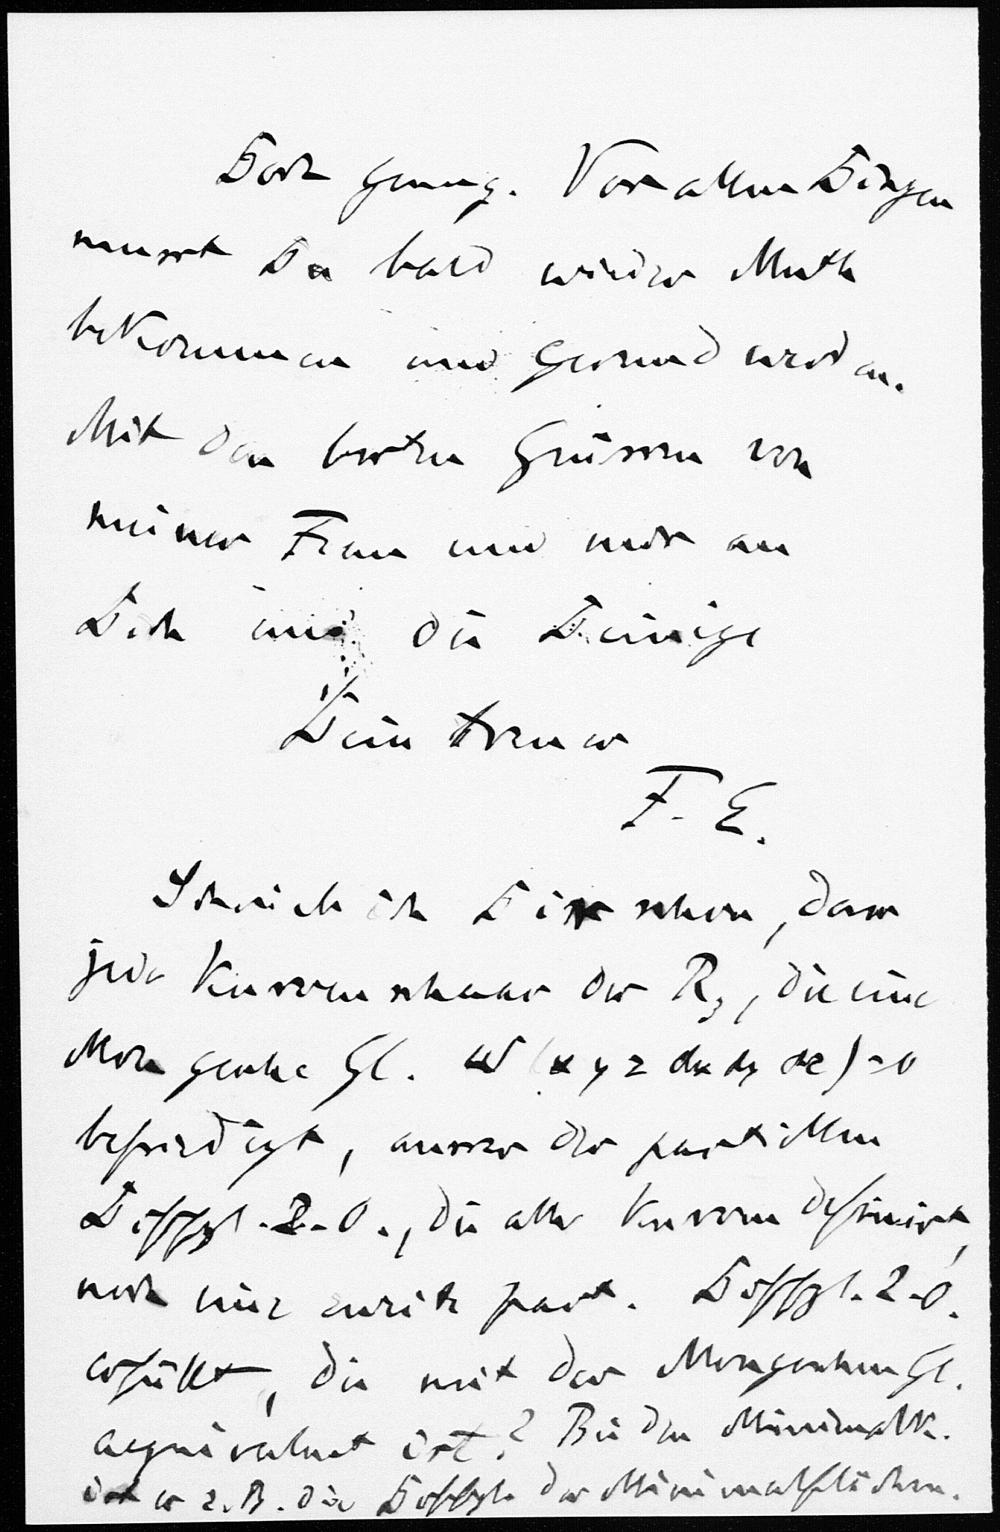 Doch genug. Vor allen Dingen
musst Du bald wieder Muth
bekommen und gesund werden.
Mit den besten Grüssen von
meiner Frau und mir an
Dich und die Deinige
Dein treuer
F. E.
Schrieb ich Dir schon, dass
jede Kurvenschaar der R3, die eine
Mongesche Gl. W(x y z dx dy dz)=0
befriedigt, ausser der partiellen
Diffgl. 2. O., die alle Kurven definirt,
noch eine zweite part. Diffgl. 2. O.
erfüllt, die mit der Mongeschen Gl.
aequivalent ist? Bei den Minimalk.
ist es z. B. die Diffgl. der Minimalflächen.